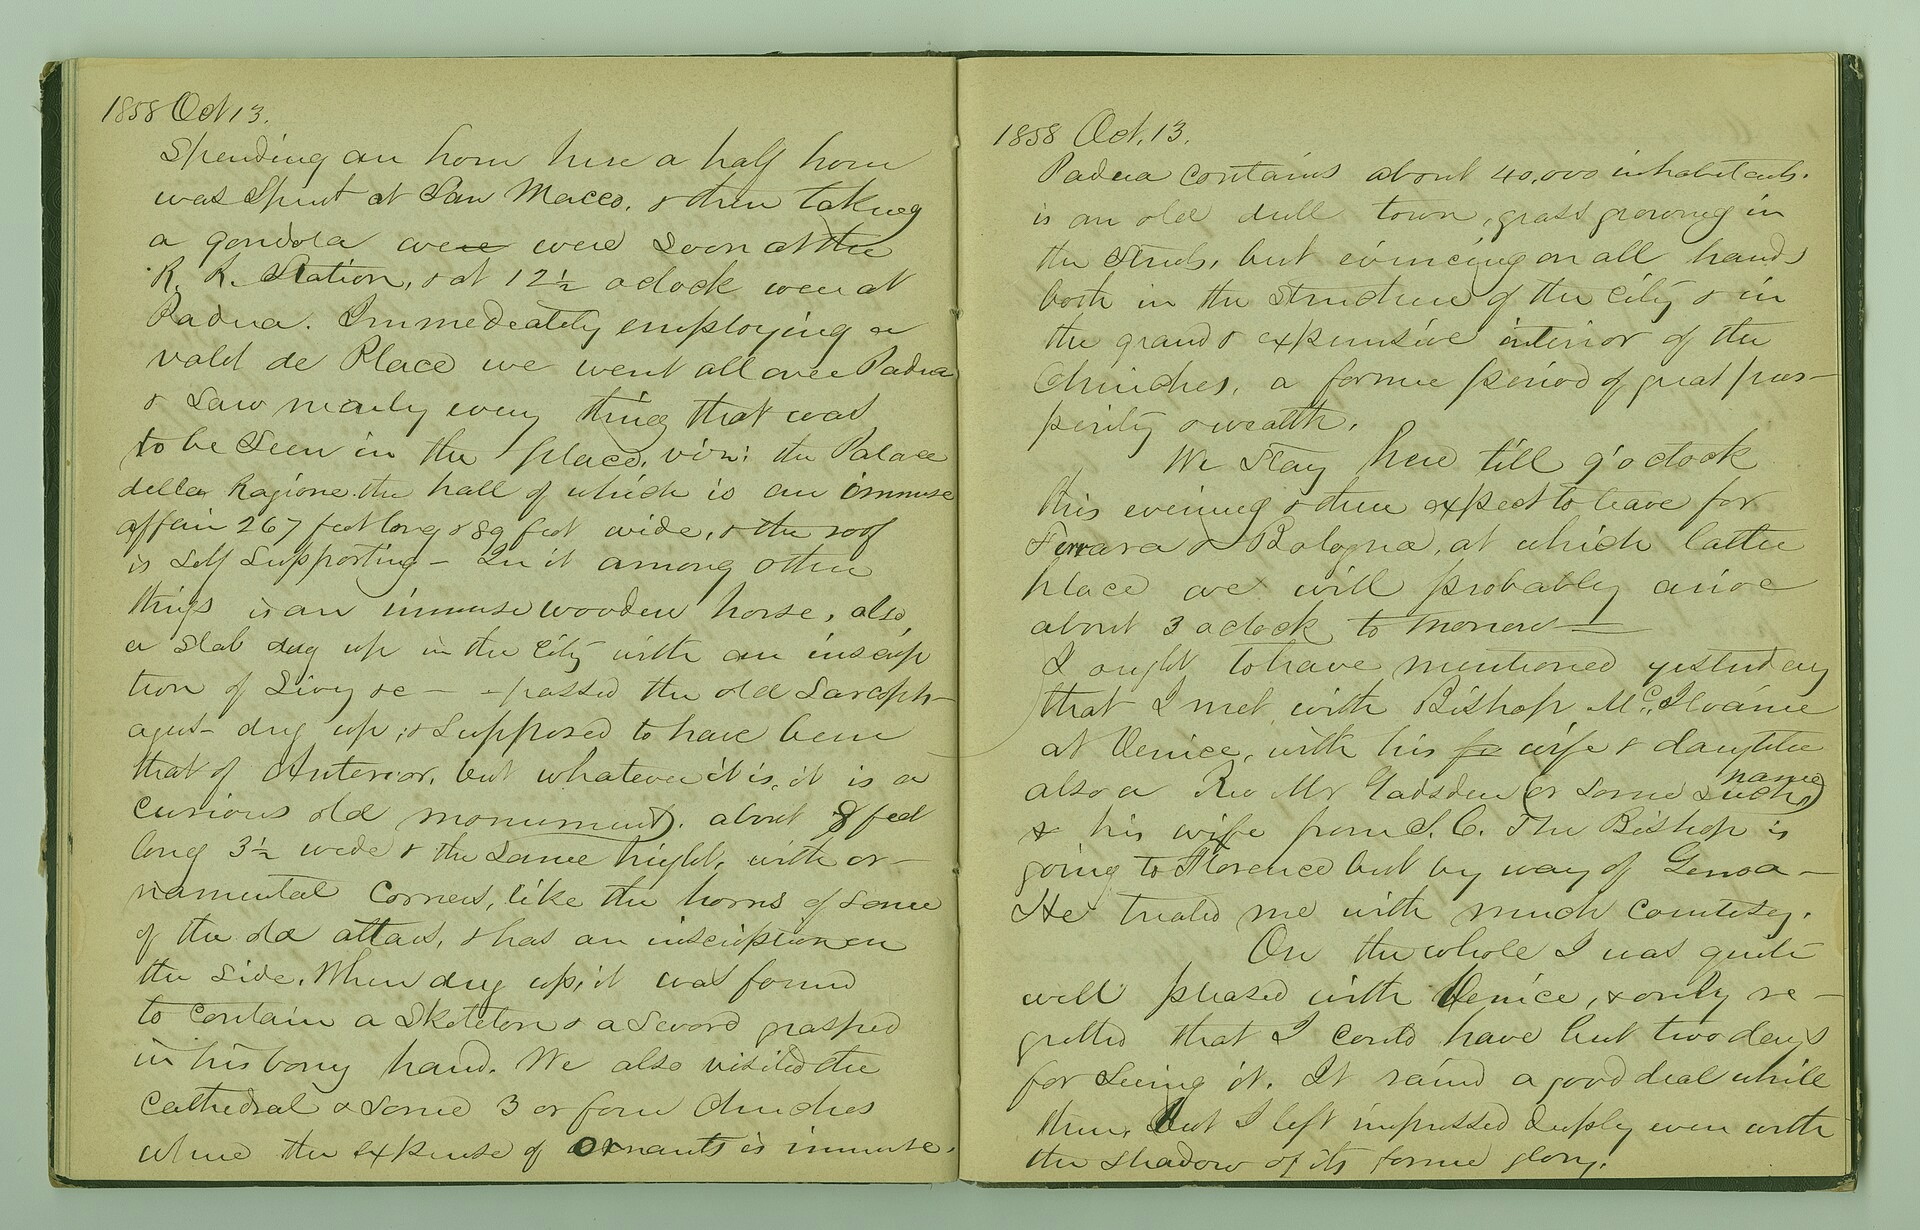 1858 Oct 13.
Spending an hour here a half hour
was spent at San Marco, & then taking
a gondola were were soon at the
R. R. Station, & at 12½ oclock were at
Padua. Immedeately employing a
valet de Place we went all over Padua
& saw nearly every thing that was
to be seen in the place, viz: the Palace
della Ragione the hall of which is an immense
affair 267 feet long & 89 feet wide, & the roof
is self supporting – In it among other
things is an immense wooden horse, also
a slab dug up in the city with an inscrip
tion of Livy &c – passed the old Sarcoph-
agus – dug up, & supposed to have been
that of Antenor, but whatever it is, it is a
curious old monument, about 8 feet
long 3½ wide & the same hight, with or-
namental corners, like the horns of some
of the old altars, & has an inscription on
the side. When dug up, it was found
to contain a skeleton & a sword grasped
in his bony hand. We also visited the
Cathedral & some 3 or four Churches
where the expense of ornants is immense.
1858 Oct. 13.
Padua contains about 40,000 inhabitants.
is an old dull town, grass growing in
the streets, but evincing on all hands
both in the structure of the city & in
the grand & expensive interior of the
Churches, a former period of great pros-
perity & wealth.
We stay here till 9 oclock
this evening & then expect to leave for
Ferrara & Bologna, at which latter
place we will probably arive
about 3 oclock to morrow —
I ought to have mentioned yesterday
that I met with Bishop McIlvaine
at Venice, with his wife & daughter
also a Rev Mr Gadsden (or some such name)
& his wife from S. C. The Bishop is
going to Florence but by way of Genoa –
He treated me with much courtesy.
On the whole I was quite
well pleased with Venice, & only re-
gretted that I could have but two days
for seeing it. It raind a good deal while
there, but I left impressed deeply even with
the shadow of its former glory.